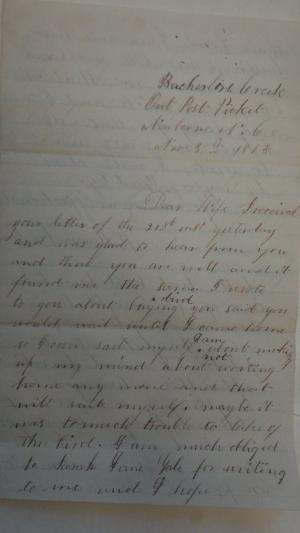 Bachelors Creek
Out Post Picket
Newberne N. C
Nov 3d 1863
Dear Wife I received
your letter of the 21st ult yesterday
and was glad to hear from you
and that you are well and it
found me the same I wrote
to you about buying you said you
would wait until I came home
so I can suit myself I am about making
not
up my mind about writing
home any more and that
will suit myself maybe it
was to much trouble to take of
the bird. I am much obliged
to Sarah Jane Yale for writing
to me and I hope